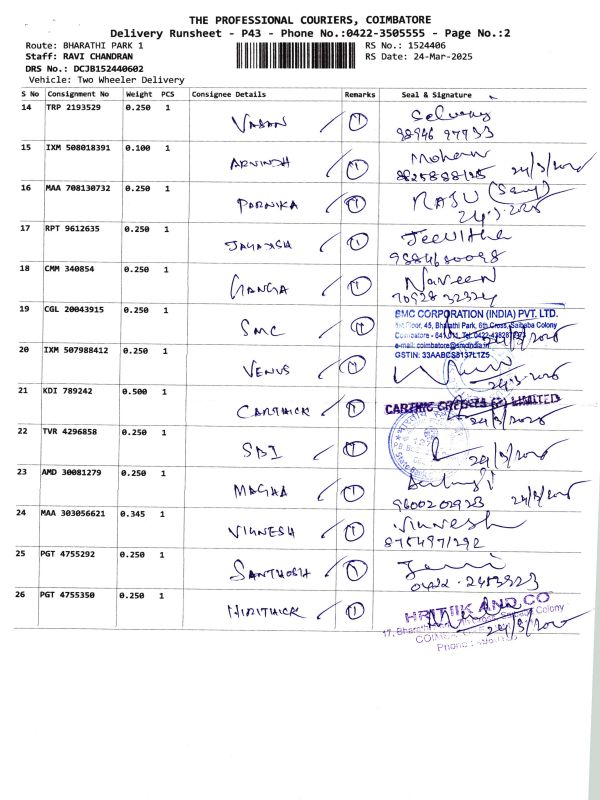 THE PROFESSIONAL COURIERS, COIMBATORE
Delivery Runsheet - P43 - Phone No.:0422-3505555 - Page No.:2
Route: BHARATHI PARK 1 RS No.: 1524406
Staff: RAVI CHANDRAN RS Date: 24-Mar-2025
DRS No.: DCJB152440602
Vehicle: Two Wheeler Delivery
S No Consignment No Weight PCS Consignee Details Remarks Seal & Signature
14 TRP 2193529 0.250 1 VASAN 1
98946 97733
15 IXM 508018391 0.100 1 ARVINDH 1 Mohan
24/3/2025
16 MAA 708130732 0.250 1 PORNIKA 1 RAJU
24.3.2025
17 RPT 9612635 0.250 1 1 Jeevitha
18 CMM 340854 0.250 1 GANGA 1 Naveen
70928 32324
19 CGL 20043915 0.250 1 SMC 1 SMC CORPORATION (INDIA) PVT. LTD.
1st Floor, 45, Bharathi Park, 6th Cross, Saibaba Colony
Coimbatore - 641 011. Tel: 0422-
e-mail: coimbatore@smcindia.in
GSTIN: 33AABCS8137L1Z5
20 IXM 507988412 0.250 1 VENUS 1
24.3.2025
21 KDI 789242 0.500 1 CARTHICK 1 CARTHIC CREDITS (P) LIMITED
24/3/2025
22 TVR 4296858 0.250 1 SBI 1
24/3/2025
23 AMD 30081279 0.250 1 MAGHA 1
9600202923 24/3/2025
24 MAA 303056621 0.345 1 VIGNESH 1 Vignesh
8754971292
25 PGT 4755292 0.250 1 SANTHOSH 1
0422-2453923
26 PGT 4755350 0.250 1 HIRITHICK 1 HRITHIK AND CO
Colony
24/3/2025
Phone :